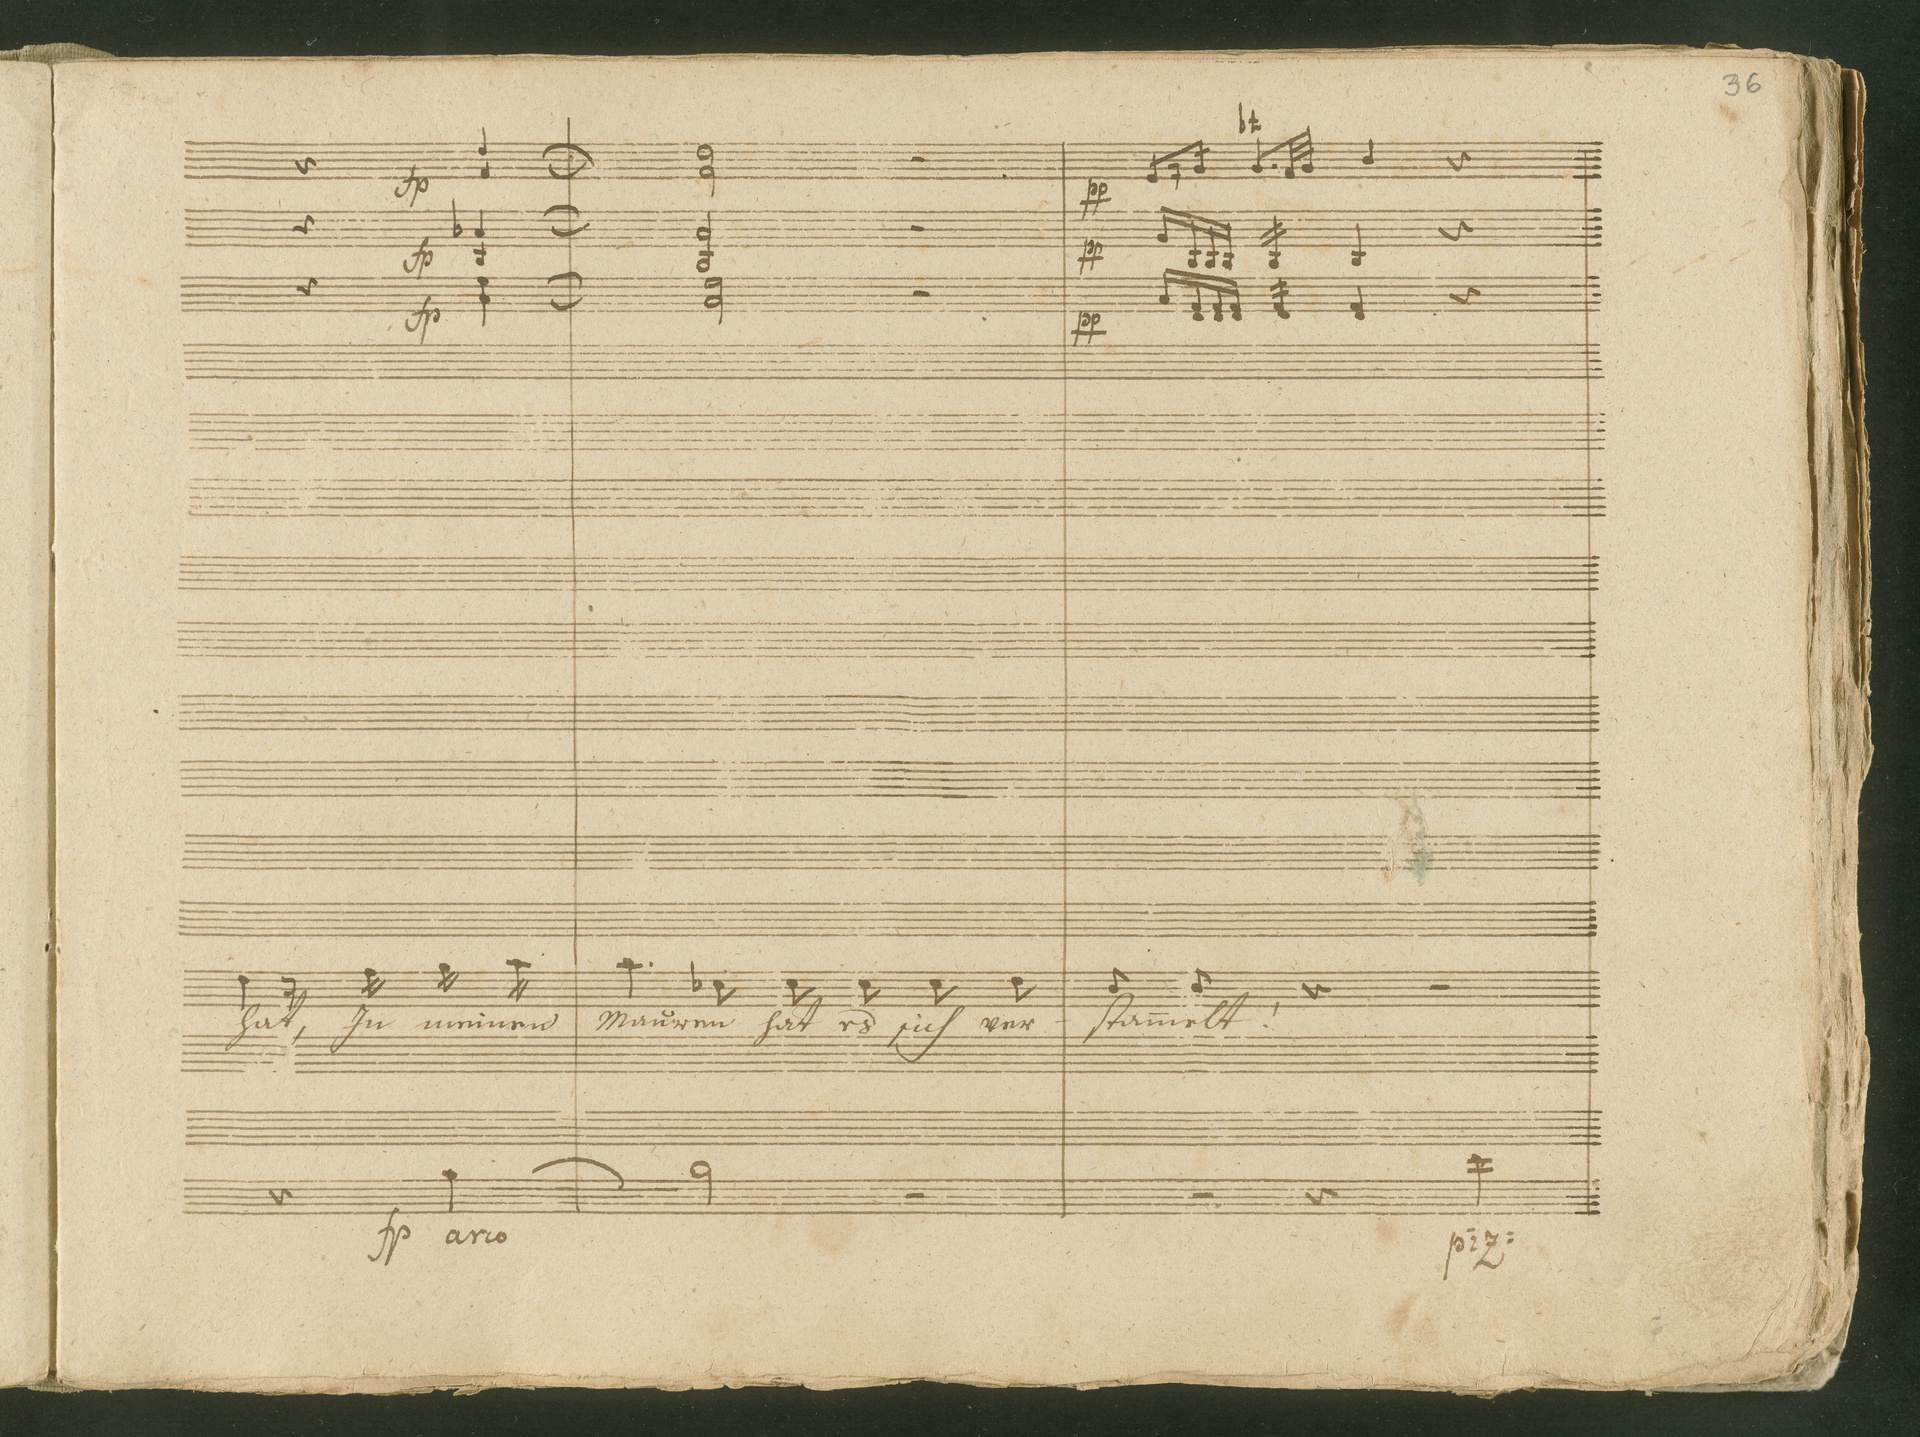 36
fp
pp
fp
pp
fp
pp
hat, In meinen Mauren hat es sich ver - stam̅elt!
fp arco
piz: